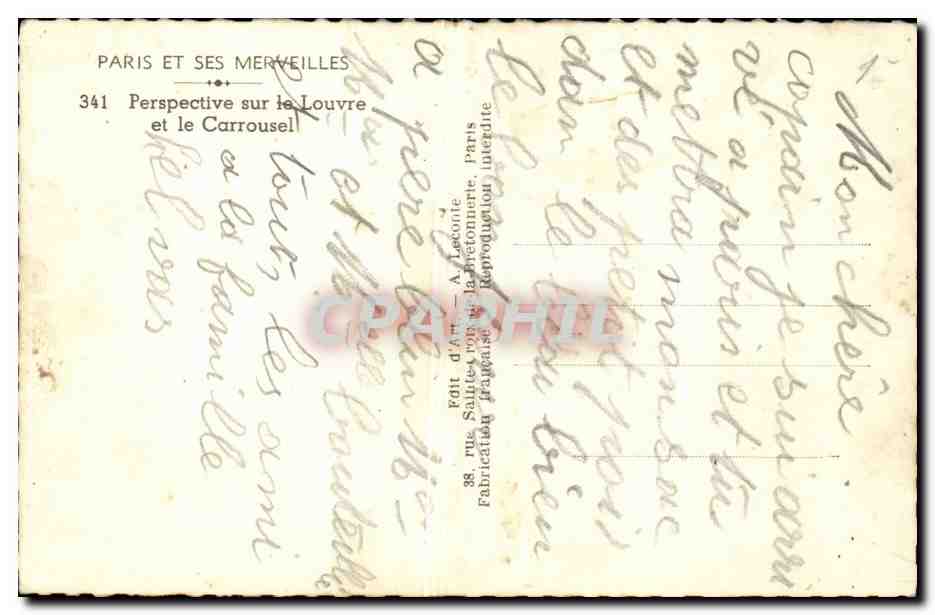 PARIS ET SES MERVEILLES
341 Perspective sur le Louvre
et le Carrousel
Edit d'Art — A. Leconte
38, rue Sainte-Croix-de-la-Bretonnerie, Paris
Fabrication française — Reproduction interdite
CPAPHIL
Mon chêre
copain je sui arri
vé a paris et tu
mettra mon sac
et des petit pois
dan le bien
le
a piere
et
et tout les ami
a la famille